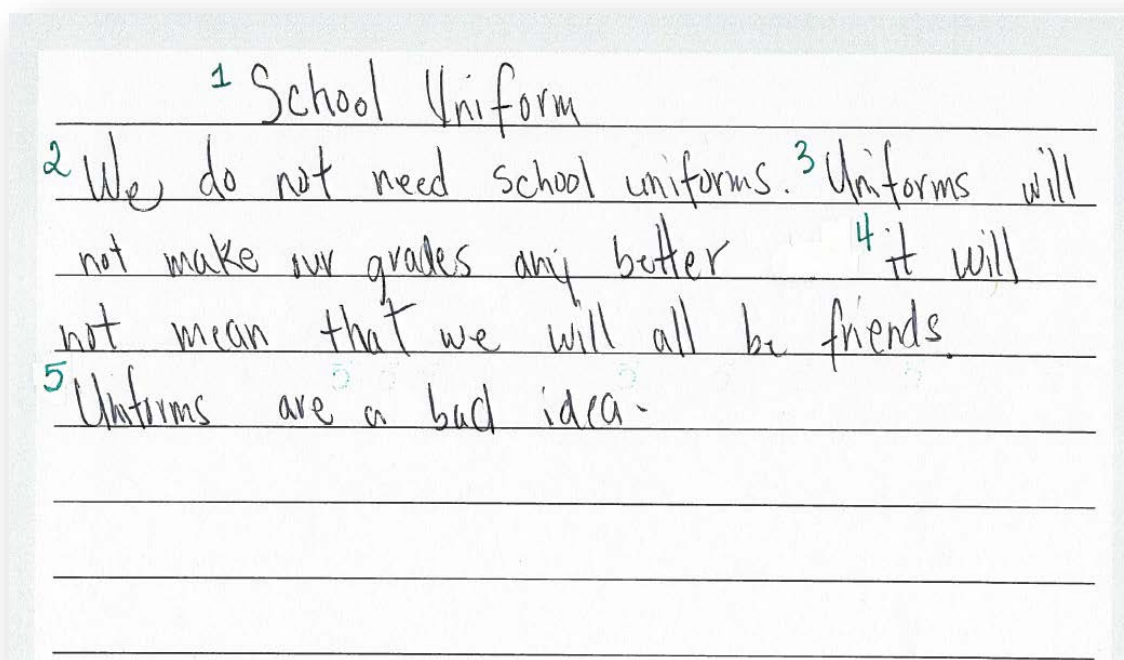 1 School Uniform
2 We do not need school uniforms. 3 Uniforms will
not make our grades any better 4 it will
not mean that we will all be friends.
5 Uniforms are a bad idea.